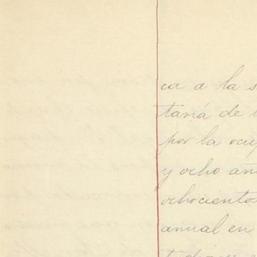 ca a la s
taria de
por la ocu
y ocho añ
ochocientos
anual en